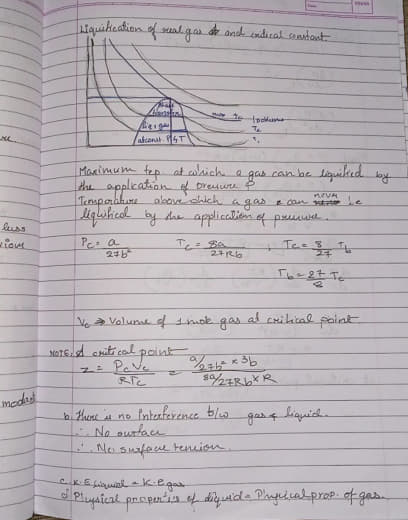 Liquification of real gas and critical constant.
Isotherms
Tc
liq + gas
at const. P & T
Maximum tep. at which a gas can be liquified by
the application of pressure
Temperature above which a gas can never be
liquified by the application of pressure.
less
Pc = a/27b² Tc = 8a/27Rb ; Tc = 8/27 Tb
Tb = 27/8 Tc
Vc → Volume of 1 mole gas at critical point
NOTE: A critical point
z = PcVc/RTc = a/27b² × 3b / 8a/27Rb × R
b. There is no Interference b/w gas & liquid.
∴ No surface
∴ No surface tension.
c. K.E liquid = K.E gas
d. Physical properties of liquid = Physical prop. of gas.